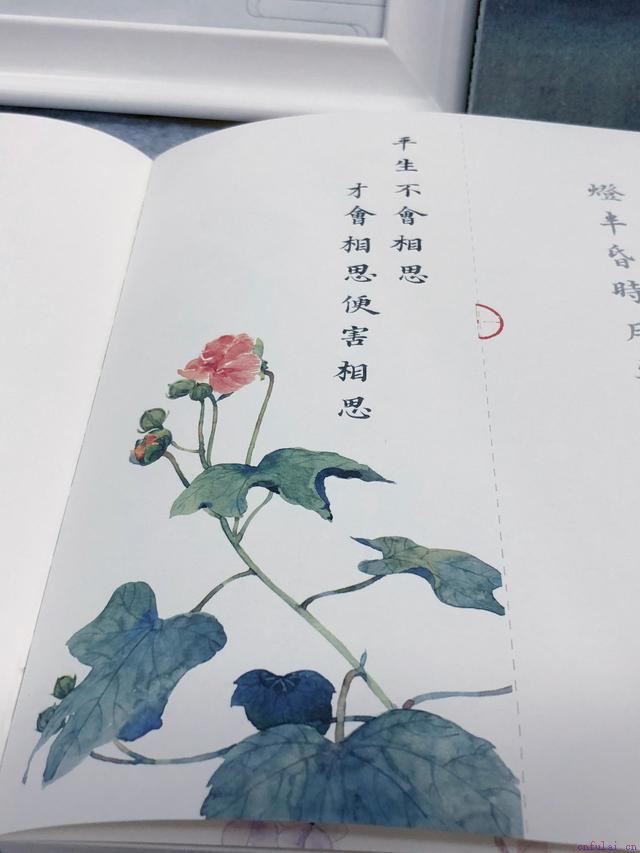 平生不會相思
才會相思便害相思
燈半昏時
cnfulai.cn